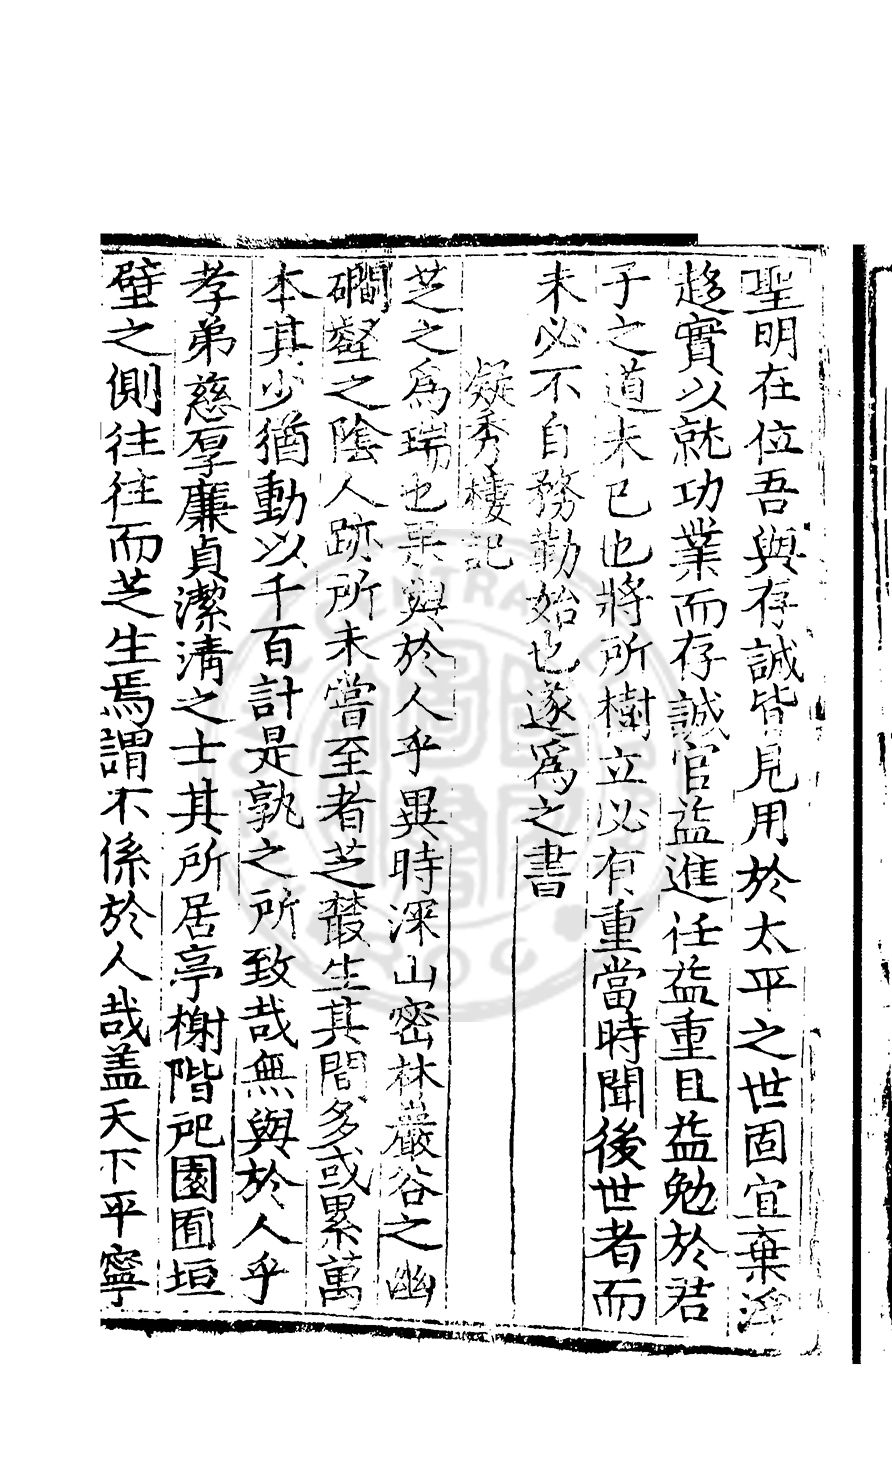 聖明在位吾與存誠皆見用於太平之世固宜棄浮
趍實以就功業而存誠官益進任益重且益勉於君
子之道未已也將所樹立必有重當時聞後世者而
未必不自務勤始也遂為之書
凝秀樓記
芝之為瑞也果與於人乎異時深山密林巖谷之幽
磵壑之陰人跡所未嘗至者芝叢生其間多或累萬
本其少猶動以千百計是孰之所致哉無與於人乎
孝弟慈厚廉貞潔清之士其所居亭榭階戺園囿垣
壁之側往往而芝生焉謂不係於人哉盖天下平寧